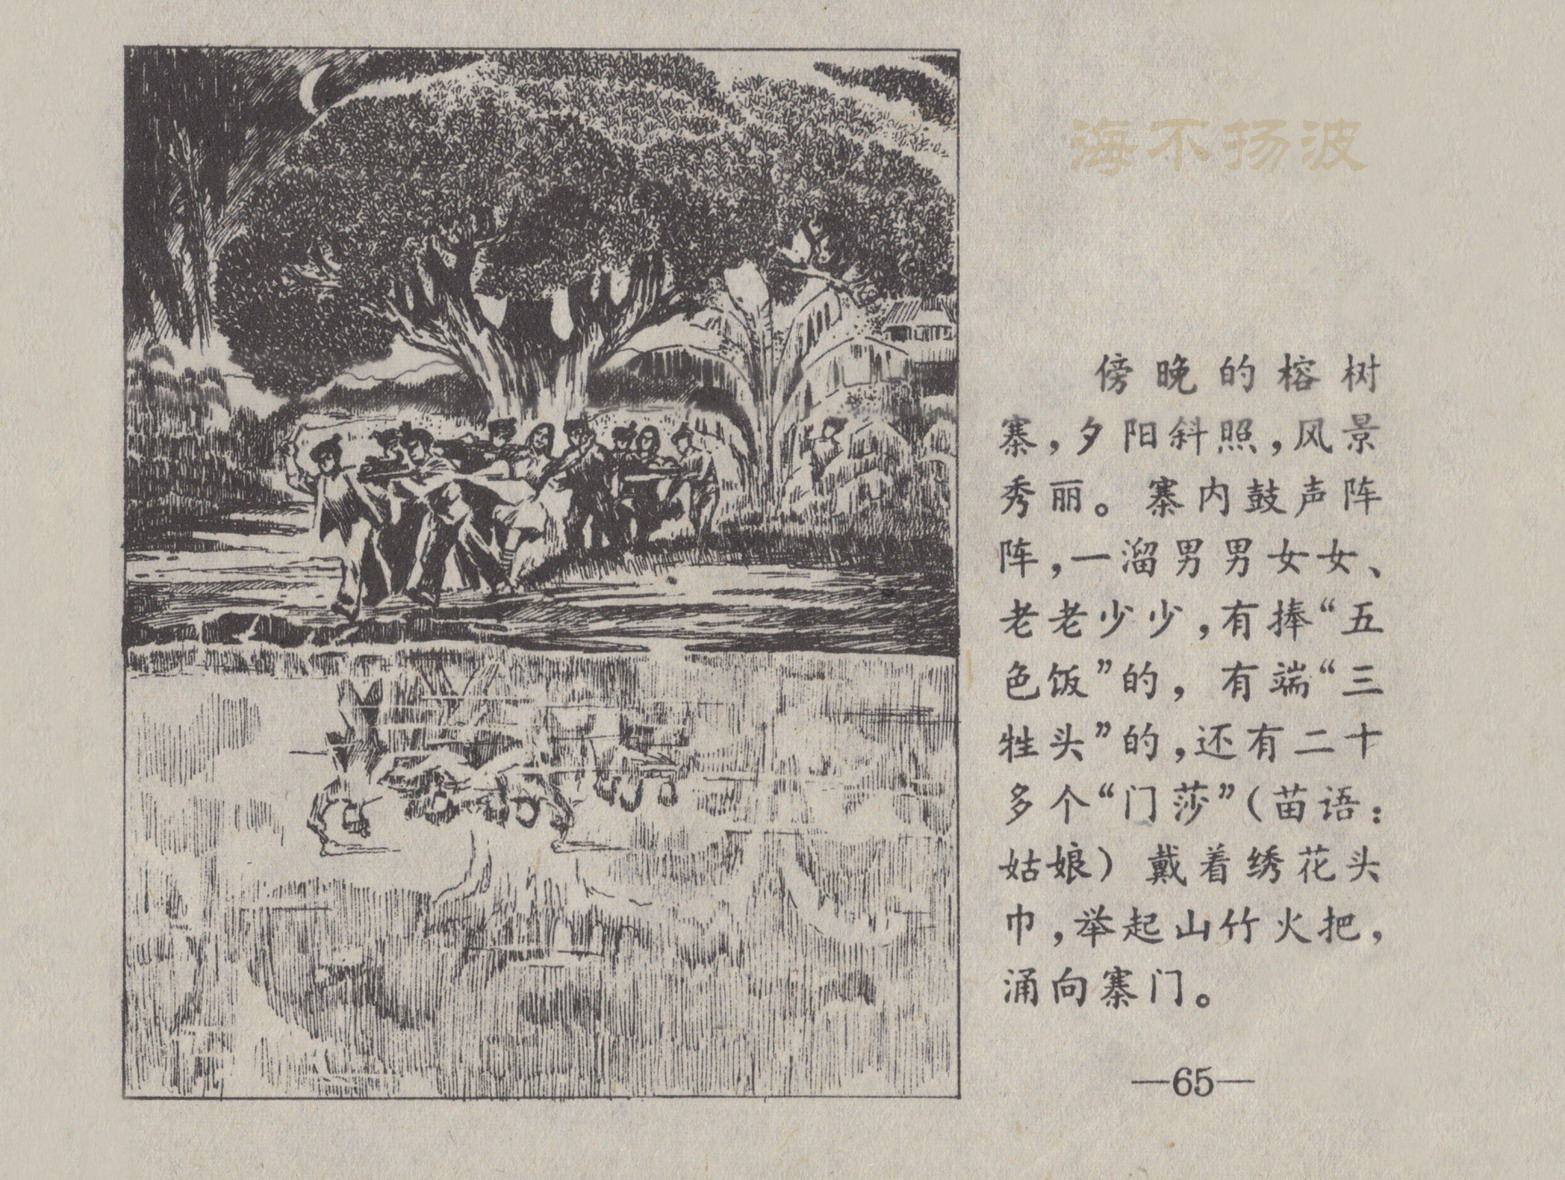 海不扬波
傍晚的榕树
寨,夕阳斜照,风景
秀丽。寨内鼓声阵
阵,一溜男男女女、
老老少少,有捧“五
色饭”的,有端“三
牲头”的,还有二十
多个“门莎”(苗语:
姑娘)戴着绣花头
巾,举起山竹火把,
涌向寨门。
—65—